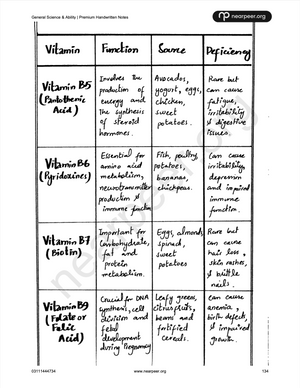 General Science & Ability | Premium Handwritten Notes
nearpeer.org
Vitamin Function Source Deficiency
Vitamin B5
(Pantothenic
Acid)
Involves the
production of
energy and
the synthesis
of steroid
hormones.
Avocados,
yogurt, eggs,
chicken,
sweet
potatoes.
Rare but
can cause
fatigue,
irritability
& digestive
issues.
Vitamin B6
(Pyridoxines)
Essential for
amino acid
metabolism,
neurotransmitter
production &
immune function
Fish, poultry
potatoes,
bananas,
chickpeas.
Can cause
irritability
depression
and impaired
immune
function.
Vitamin B7
(Biotin)
Important for
Carbohydrate,
fat and
protein
metabolism.
Eggs, almonds,
spinach,
sweet
potatoes
Rare but
can cause
hair loss,
skin rashes,
& brittle
nails.
Vitamin B9
(Folate or
Folic
Acid)
Crucial for DNA
synthesis, cell
division and
fetal
development
during pregnancy
Leafy greens,
citrus fruits,
beans and
fortified
cereals.
Can cause
anemia,
birth defects,
& impaired
growth.
03111444734
www.nearpeer.org
134